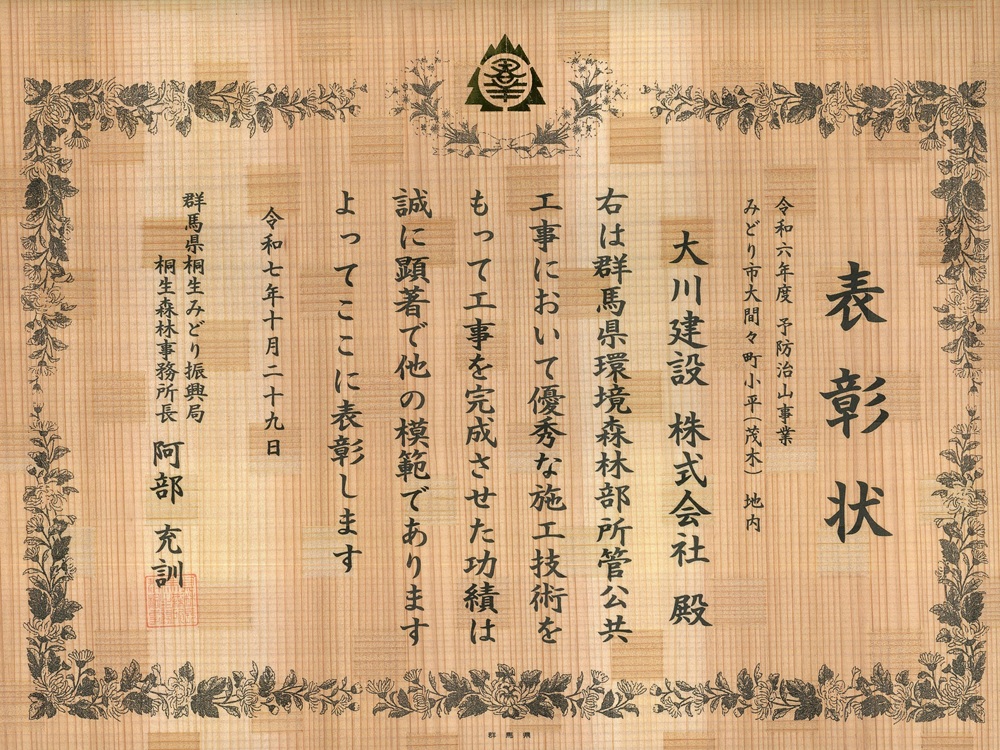 表彰状
令和六年度 予防治山事業
みどり市大間々町小平(茂木) 地内
大川建設 株式会社 殿
右は群馬県環境森林部所管公共
工事において優秀な施工技術を
もって工事を完成させた功績は
誠に顕著で他の模範であります
よってここに表彰します
令和七年十月二十九日
群馬県桐生みどり振興局
桐生森林事務所長 阿部 充訓
群馬県